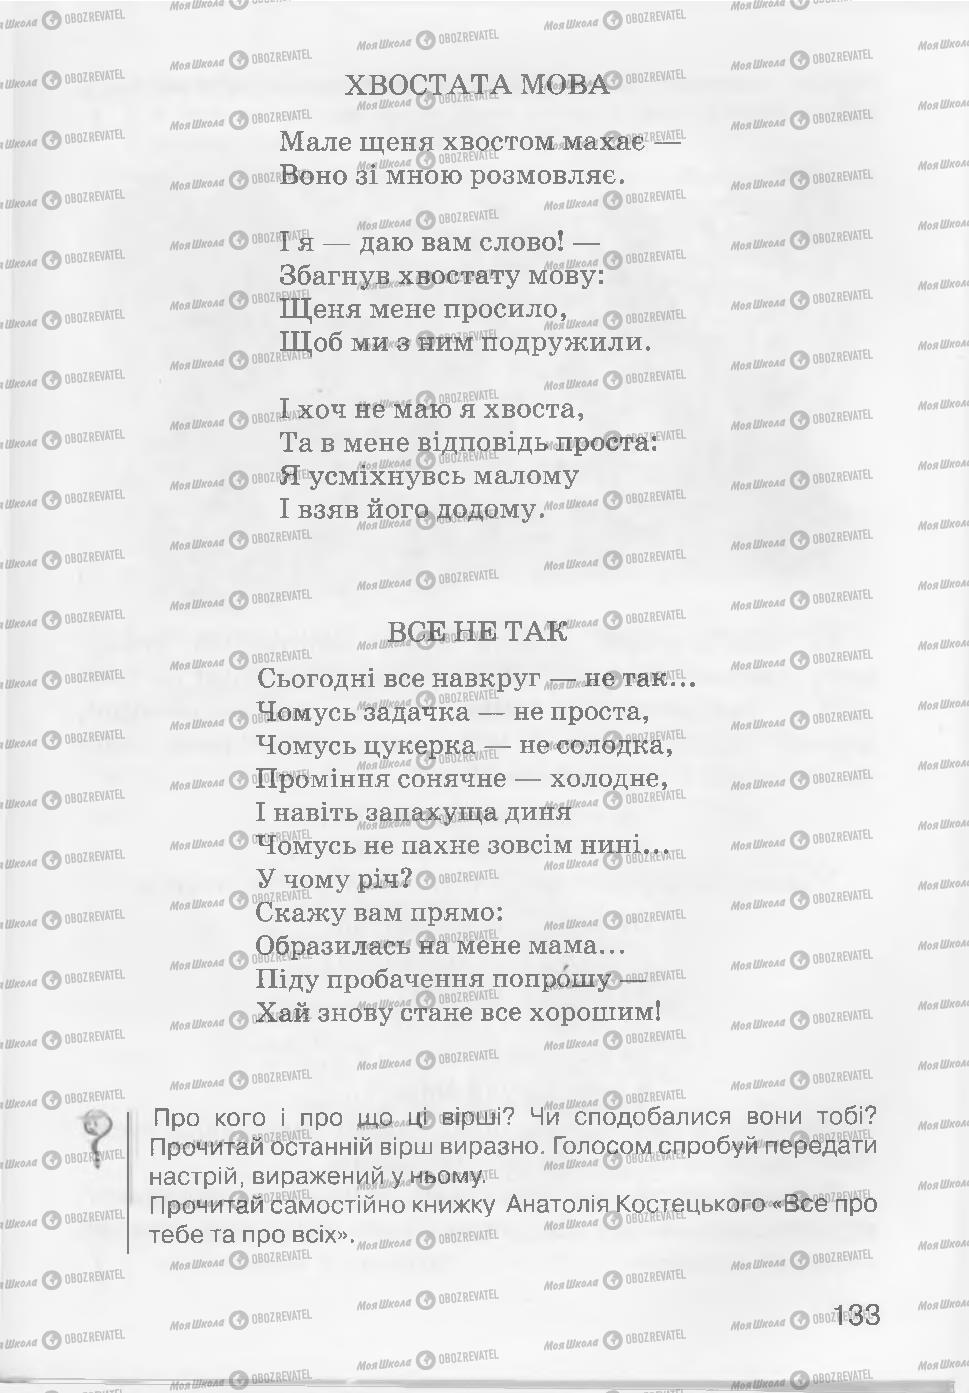 ХВОСТАТА МОВА
Мале щеня хвостом махає —
Воно зі мною розмовляє.
І я — даю вам слово! —
Збагнув хвостату мову:
Щеня мене просило,
Щоб ми з ним подружили.
І хоч не маю я хвоста,
Та в мене відповідь проста:
Я усміхнувсь малому
І взяв його додому.
ВСЕ НЕ ТАК
Сьогодні все навкруг — не так...
Чомусь задачка — не проста,
Чомусь цукерка — не солодка,
Проміння сонячне — холодне,
І навіть запахуща диня
Чомусь не пахне зовсім нині...
У чому річ?
Скажу вам прямо:
Образилась на мене мама...
Піду пробачення попро́шу —
Хай знову стане все хорошим!
Про кого і про що ці вірші? Чи сподобалися вони тобі?
Прочитай останній вірш виразно. Голосом спробуй передати
настрій, виражений у ньому.
Прочитай самостійно книжку Анатолія Костецького «Все про
тебе та про всіх».
133